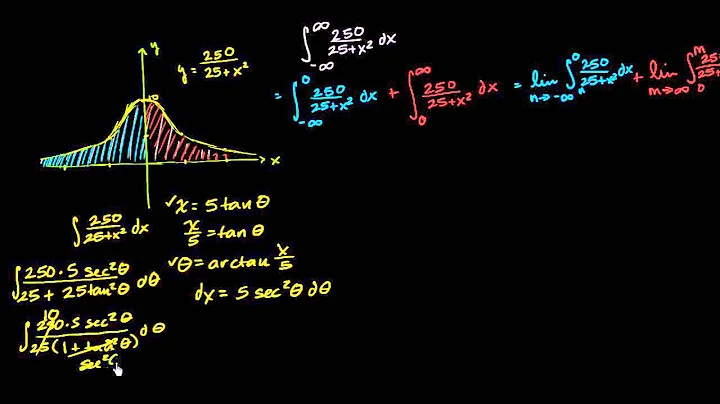 y
y = 250/(25+x²)
∫_{-∞}^{∞} 250/(25+x²) dx
= ∫_{-∞}^{0} 250/(25+x²) dx + ∫_{0}^{∞} 250/(25+x²) dx = lim_{n→-∞} ∫_{n}^{0} 250/(25+x²) dx + lim_{m→∞} ∫_{0}^{m}
10
x
∫ 250/(25+x²) dx
✓x = 5 tan θ
x/5 = tan θ
✓θ = arctan x/5
dx = 5 sec²θ dθ
∫ 250·5 sec²θ/(25 + 25tan²θ) dθ
10
∫ 250·5 sec²θ/(25(1+tan²θ)) dθ
sec²